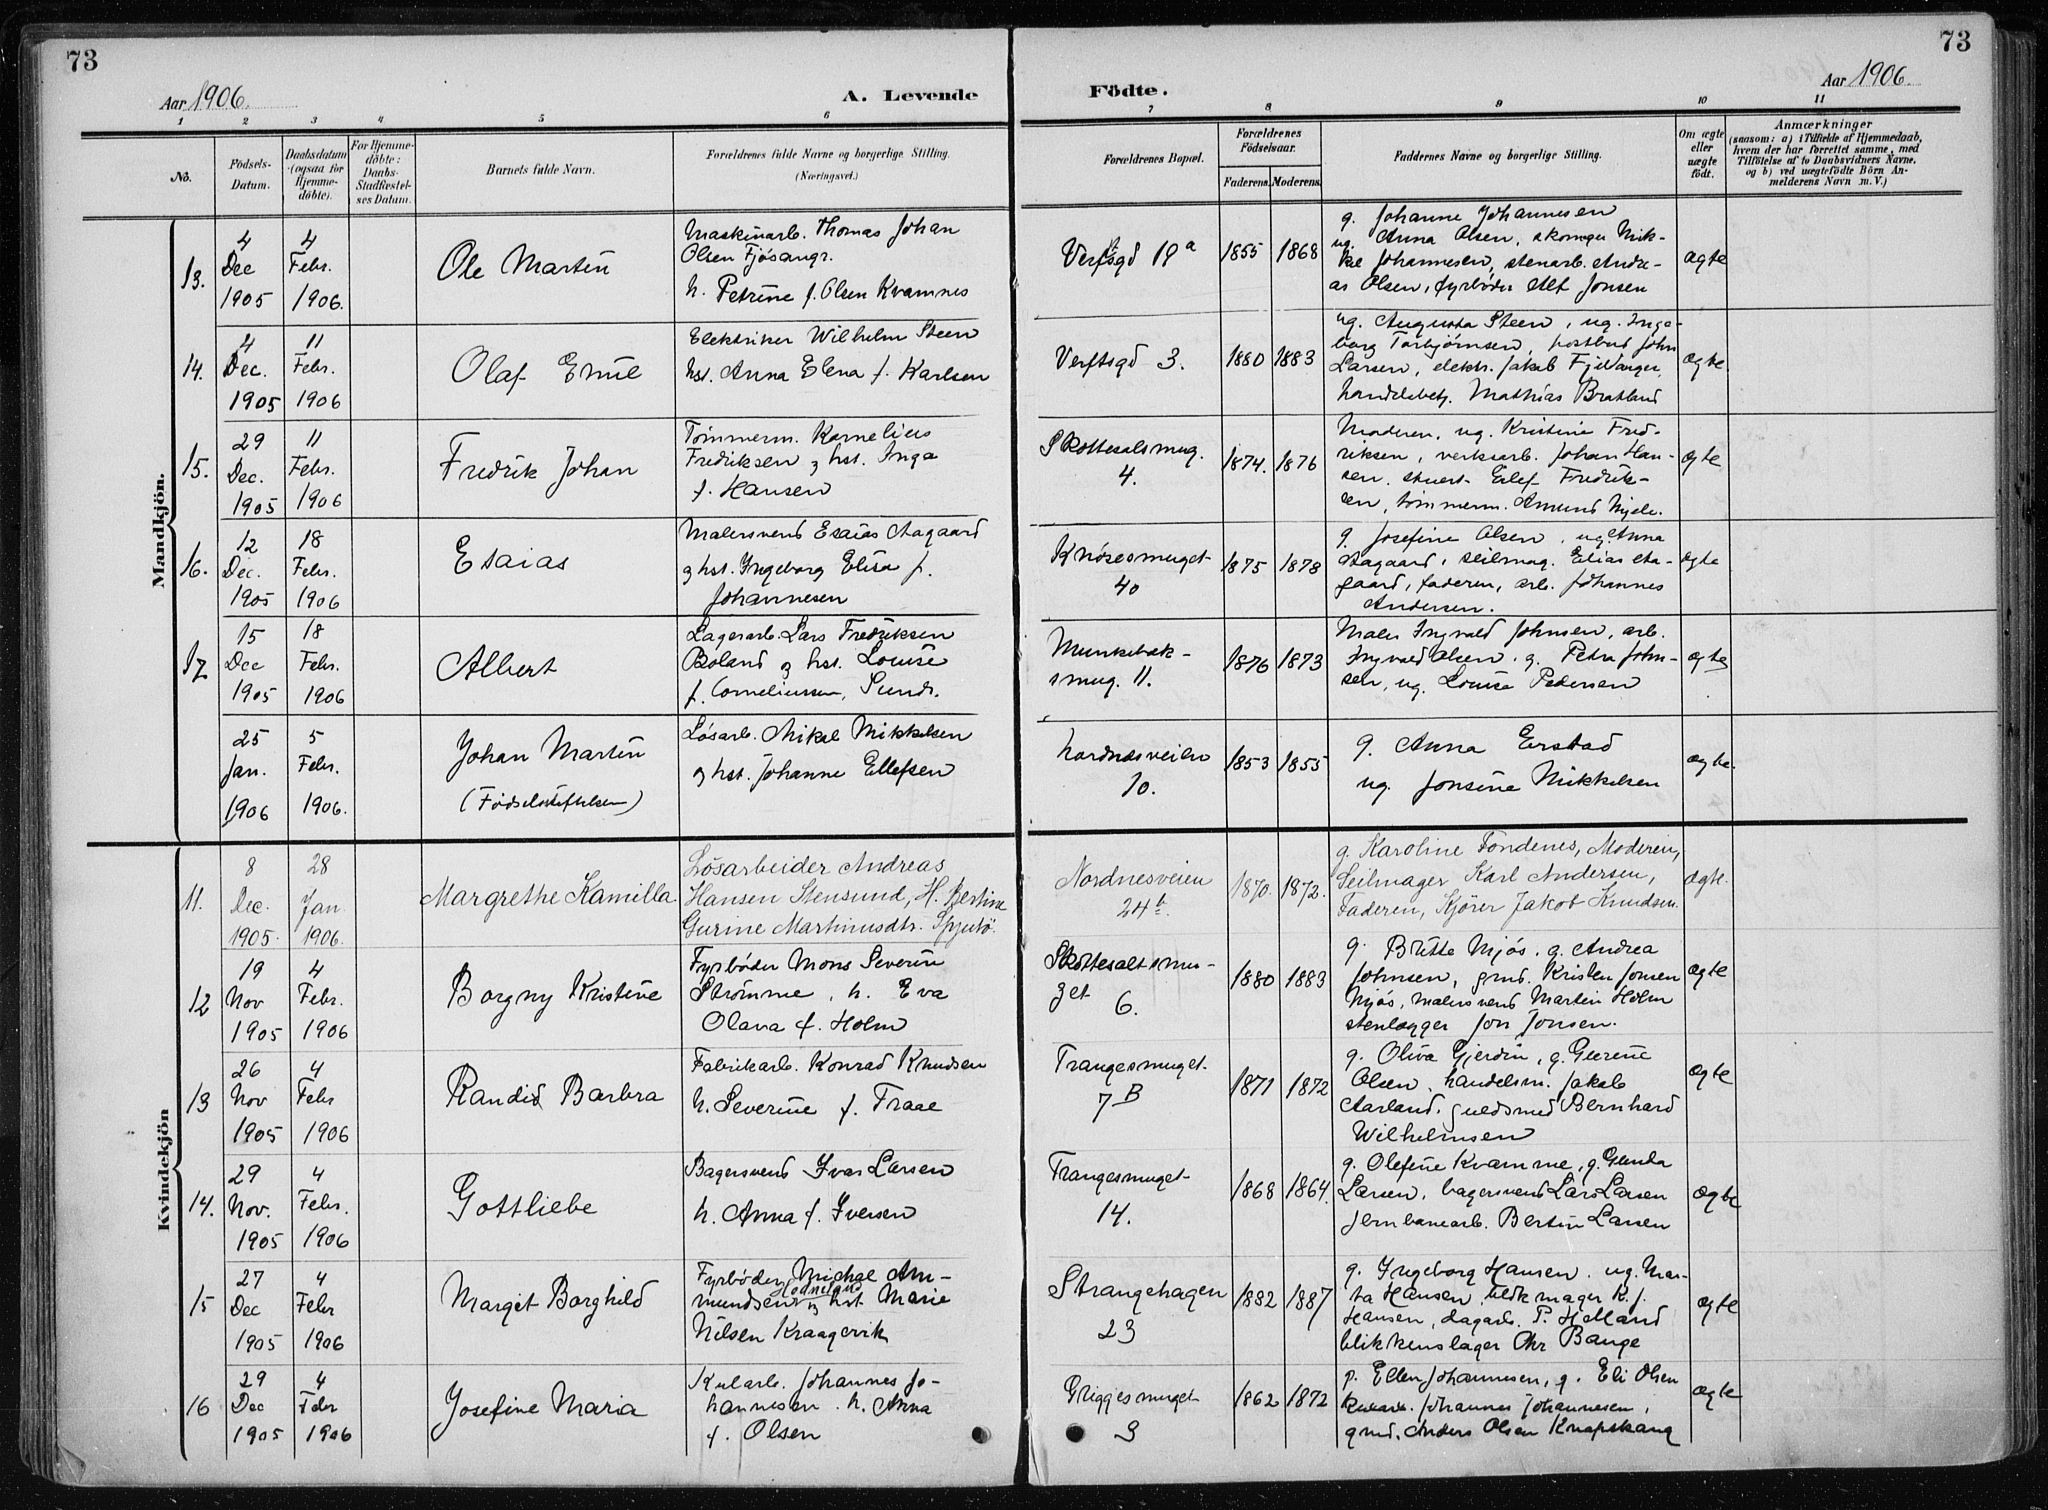 73
73
Aar 1906.
A. Levende
Födte.
Aar 1906.
1 2 3 4 5 6 7 8 9 10 11
No.
Födsels-
Datum.
Daabsdatum
(ogsaa for
Hjemme-
döbte).
For Hjemme-
döbte:
Daabs-
Stadfæstel-
ses Datum.
Barnets fulde Navn.
Forældrenes fulde Navne og borgerlige Stilling.
(Næringsvei.)
Forældrenes Bopæl.
Forældrenes
Födselsaar.
Faderens. Moderens.
Faddernes Navne og borgerlige Stilling.
Om ægte
eller
uægte
födt.
Anmærkninger
(saasom: a) i Tilfælde af Hjemmedaab,
hvem der har forrettet samme, med
Tilföielse af to Daabsvidners Navne,
og b) ved uægtefödte Börn An-
melderens Navn m. V.)
Mandkjön.
13.
4
Dec
1905
4
Febr.
1906.
Ole Martin
Maskinarb. Thomas Johan
Olsen Fjøsangr.
h. Petrine f. Olsen Kvamnes
Verftsgd 18a
1855
1868
g. Johanne Johannesen
ug. Anna Olsen, skomager Mik-
kel Johannesen, stenarb. Andre-
as Olsen, fyrbøder Alf Jonsen
ægte
14.
4
Dec.
1905
11
Febr.
1906
Olaf Emil
Elektriker Wilhelm Steen
hst. Anna Elena f. Karlsen
Verftsgd 3.
1880
1883
ug. Augusta Steen, ug. Inge-
borg Torbjørnsen, postbud John
Larsen, elektr. Jakob Fjeldanger,
handelsbetj. Mathias Bratland
ægte.
15.
29
Dec.
1905
11
Febr.
1906
Fredrik Johan
Tømmerm. Kornelius
Fredriksen og hst. Inga
f. Hansen
Skottesalsmug.
4.
1874.
1876
Moderen, ug. Kristine Fred-
riksen, verksarb. Johan Han-
sen, stuert Eilef Fredrik-
sen, tømmerm. Amund
ægte
16.
12
Dec.
1905
18
Febr.
1906
Esaias
Malersvend Esaias Aagaard
og hst. Ingeborg Elisa f.
Johannesen
Knøsesmuget
40
1875
1878
g. Josefine Olsen, ug. Anna
Aagaard, seilmag. Elias Aa-
gaard, faderen, arb. Johannes
Andersen.
ægte
17
15
Dec
1905
18
Febr.
1906
Albert
Lagerarb. Lars Fredriksen
Boland og hst. Louise
f. Corneliussen, Sundr.
Munkebæk-
smug. 11.
1876
1873
Maler Ingvald Johnsen, arb.
Ingvald Olsen, g. Petra John-
sen, ug. Louise Pedersen
ægte
25
Jan.
1906
5
Febr.
1906.
Johan Martin
(Fødselsstiftelsen)
Løsarb. Mikal Mikkelsen
og hst. Johanne Ellefsen
Nordnesveien
10.
1853
1855
g. Anna Erstad
ug. Jonsine Mikkelsen
ægte.
Kvindekjön
11.
8
Dec.
1905.
28
Jan.
1906.
Margrethe Kamilla
Løsarbeider Andreas
Hansen Stensund, H. Bertine
Gurine Martinusdtr. Spjutø.
Nordnesveien
24b
1870.
1872.
g. Karoline Tondenes, Moderen,
Seilmager Karl Andersen,
Faderen, Kjører Jakob Knudsen.
Ægte.
12
19
Nov
1905
4
Febr.
1906
Borgny Kristine
Fyrbøder Mons Severin
Strømme, h. Eva
Olava f. Holm
Skottesaltsmu-
get
6.
1880
1883
g. Britte Mjøs, g. Andrea
Johnsen, grmd. Kristen Jonsen
Mjøs, malersvend Martin Holm
stenlægger Jon Jonsen.
ægte
13
26
Nov
1905
4
Febr
1906
Randid Barbra
Fabrikarb. Konrad Knudsen
h. Severine f. Traae
Trangesmuget
7 B
1871
1872
g. Oliva Gjerdin, g. Gurine
Olsen, handelsm. Jakob
Aarland, guldsmed Bernhard
Wilhelmsen
ægte
14.
29
Nov.
1905
4
Febr.
1906
Gottliebe
Bagersvend Ivar Larsen
h. Anna f. Iversen
Trangesmuget
14.
1868
1864.
g. Olefine Kvamme, g. Gunda
Larsen, bagersvend Lars Larsen
jernbanearb. Bertin Larsen
ægte
15
27
Dec
1905
4
Febr
1906
Margit Borghild
Fyrbøder Michal Am-
mundsen Hodneland og hst Marie
Nilsen Kraagevik
Strangehagen
23
1882
1887
g. Ingeborg Hansen, ug. Mar-
ta Hansen, blokmager K. J.
Hansen, dagarb. P. Helland
blikkenslager Chr Bauge
ægte
16
29
Dec
1905
4
Febr
1906
Josefine Maria
Kularb. Johannes Jo-
hannesen, h. Anna
f. Olsen
Griggesmuget
9
1862
1872
p. Ellen Johannesen, g. Eli Olsen
Kularb. Johannes Johannesen,
grmd. Anders Olsen Knapskang
ægte